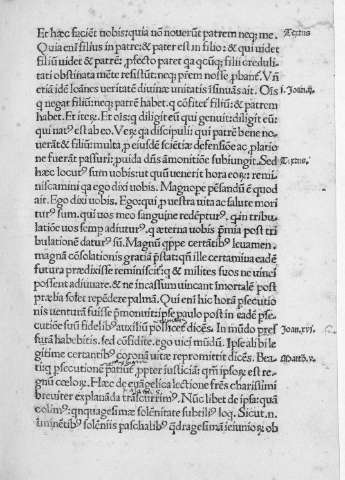 Et hæc facient uobis: quia nõ nouerũt patrem neq; me. Textus
Quia eni filius in patre: & pater est in filio: & qui uidet
filiũ uidet & patrẽ: ꝓfecto patet qa qcũq; filii creduli-
tati obstinata mẽte resistũt: neq; prem nosse ꝓbant. Vñ
etiã idẽ Ioãnes ueritatẽ diuinæ unitatis isinuãs ait. Oĩs i. Joan.
q negat filiũ: neq; patrẽ habet. q cõfitet filiũ: & patrem
habet. Et iterꝝ. Et oĩs: q diligit eũ qui genuit: diligit eũ:
qui natꝰ est ab eo. Veꝝ qa discipuli qui patrẽ bene no-
uerãt & filiũ: multa ꝓ eiusdẽ sciẽtiæ defẽsiõe ac ꝓlatiõe
ne fuerãt passuri: ꝓuida dñs ãmonitiõe subiungit. Sed Textus.
hæc locutꝰ sum uobis: ut quũ uenerit hora eoꝝ: remi-
niscamini qa ego dixi uobis. Magnope pẽsandũ e quod
ait. Ego dixi uobis. Ego: qui ꝓ uestra uita ac salute mori
turꝰ sum. qui uos meo sanguine redẽpturꝰ. q in tribu-
latiõe uos semp adiuturꝰ. q æterna uobis pmia post tri
bulationẽ daturꝰ sũ. Magnũ qppe certãtibꝰ leuamen.
magnã cõsolationis gratiã pstat: qñ ille certamina eadẽ
futura prædixisse reminiscit: q & milites suos ne uinci
possent adiuuare. & ne incassum uincant imortalẽ post
præliã solet repẽdere palmã. Qui eni hic horã psecutio
nis uenturã fuisse pmonuit: ipse paulo post in eadẽ pse-
cutiõe sese fidelibꝰ auxiliũ pollicet dicẽs. In mũdo pres Joan. xvi.
surã habebitis. sed cõfidite. ego uici mũdũ. Ipse alibi le
gitime certantibꝰ coronã uitæ repromittit dicẽs. Bea- Math. v.
ti q psecutionẽ patiunt ꝓpter iusticiã: qm ipsoꝝ est re-
gnũ cœloꝝ. Hæc de euãgelica lectione frẽs charissimi
breuiter explanãda trãscurrimꝰ. Nũc libet de ipsa: quã
colimꝰ: qnquagesimæ solẽnitate subtiliꝰ loq. Sicut. n.
iminẽtibꝰ solẽniis paschalibꝰ qdragesimæ ieiunioꝝ ob